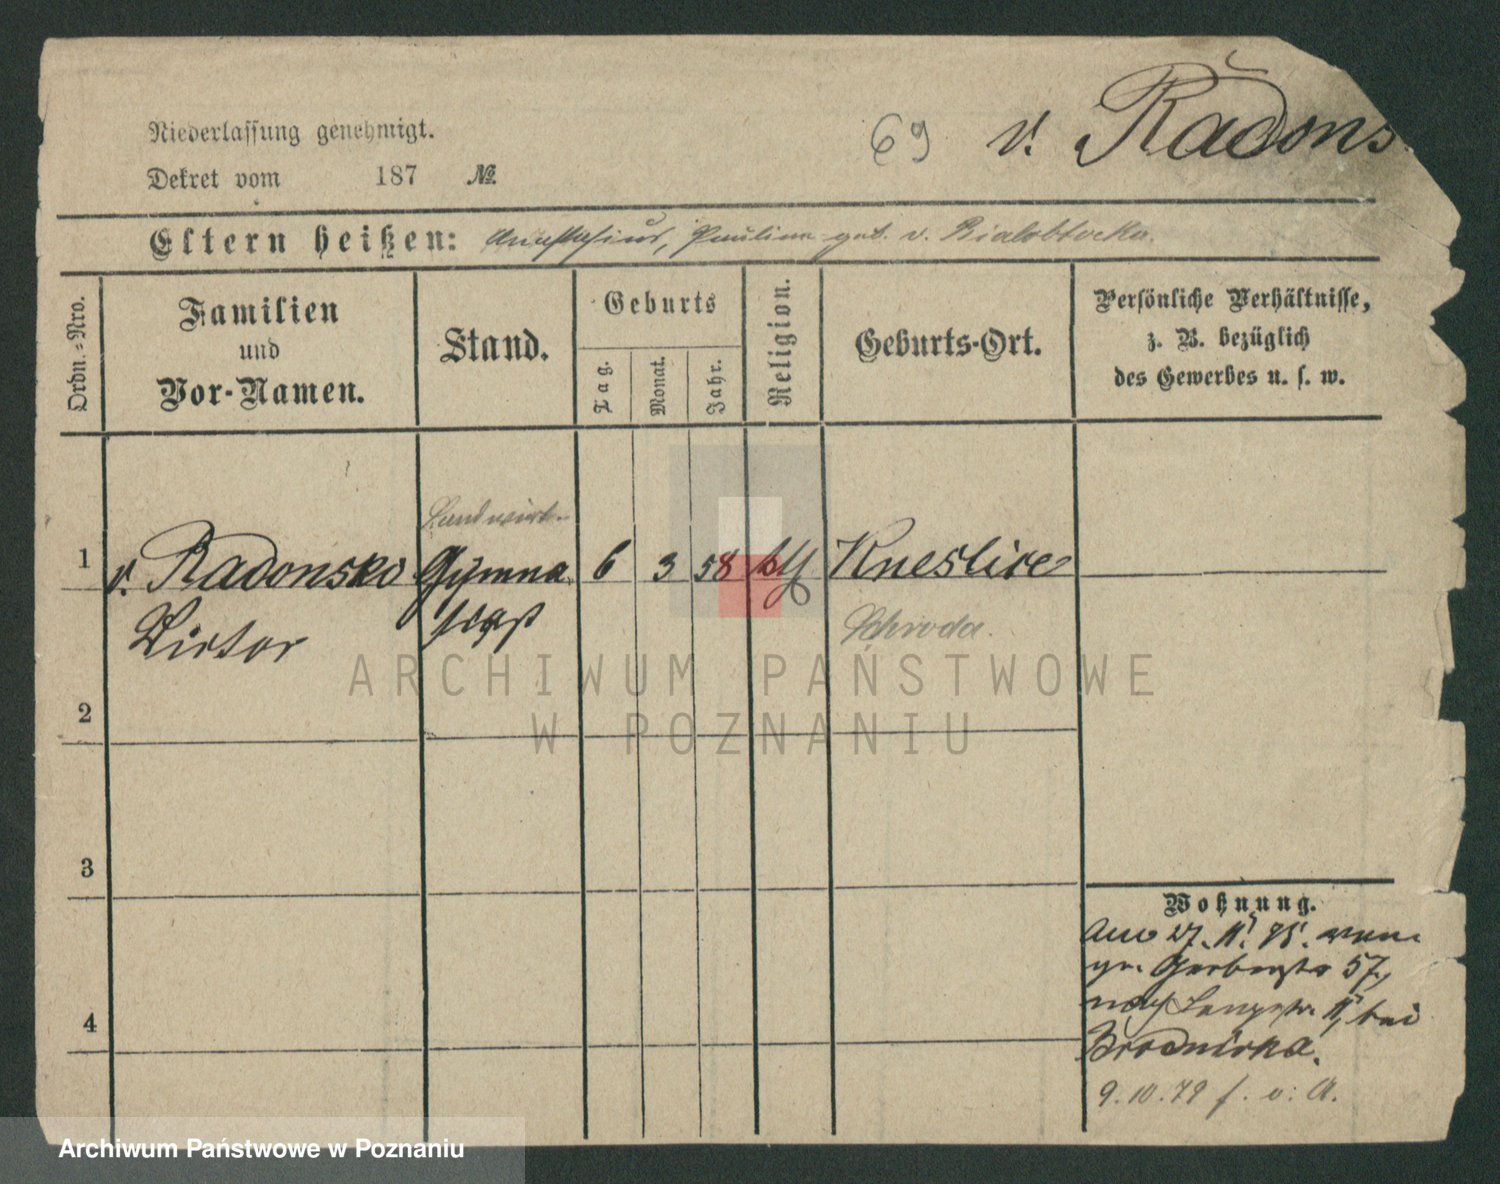 Niederlassung genehmigt.
69 v. Radons
Dekret vom 187 №
Eltern heißen: Anastasius, Paulina geb. v. Bialoblocka.
Ordn.-Nro.
Familien
und
Vor-Namen.
Stand.
Geburts
Tag.
Monat.
Jahr.
Religion.
Geburts-Ort.
Persönliche Verhältnisse,
z. B. bezüglich
des Gewerbes u. s. w.
Landwirt
1 v. Radonski Gymna 6 3 58 kth
Victor siast
Schroda.
2
3
4
Wohnung.
27. 11. von
gr. Gerberstr 57,
nach Langestr. 11, bei
9.10.79
ARCHIWUM PAŃSTWOWE
W POZNANIU
Archiwum Państwowe w Poznaniu